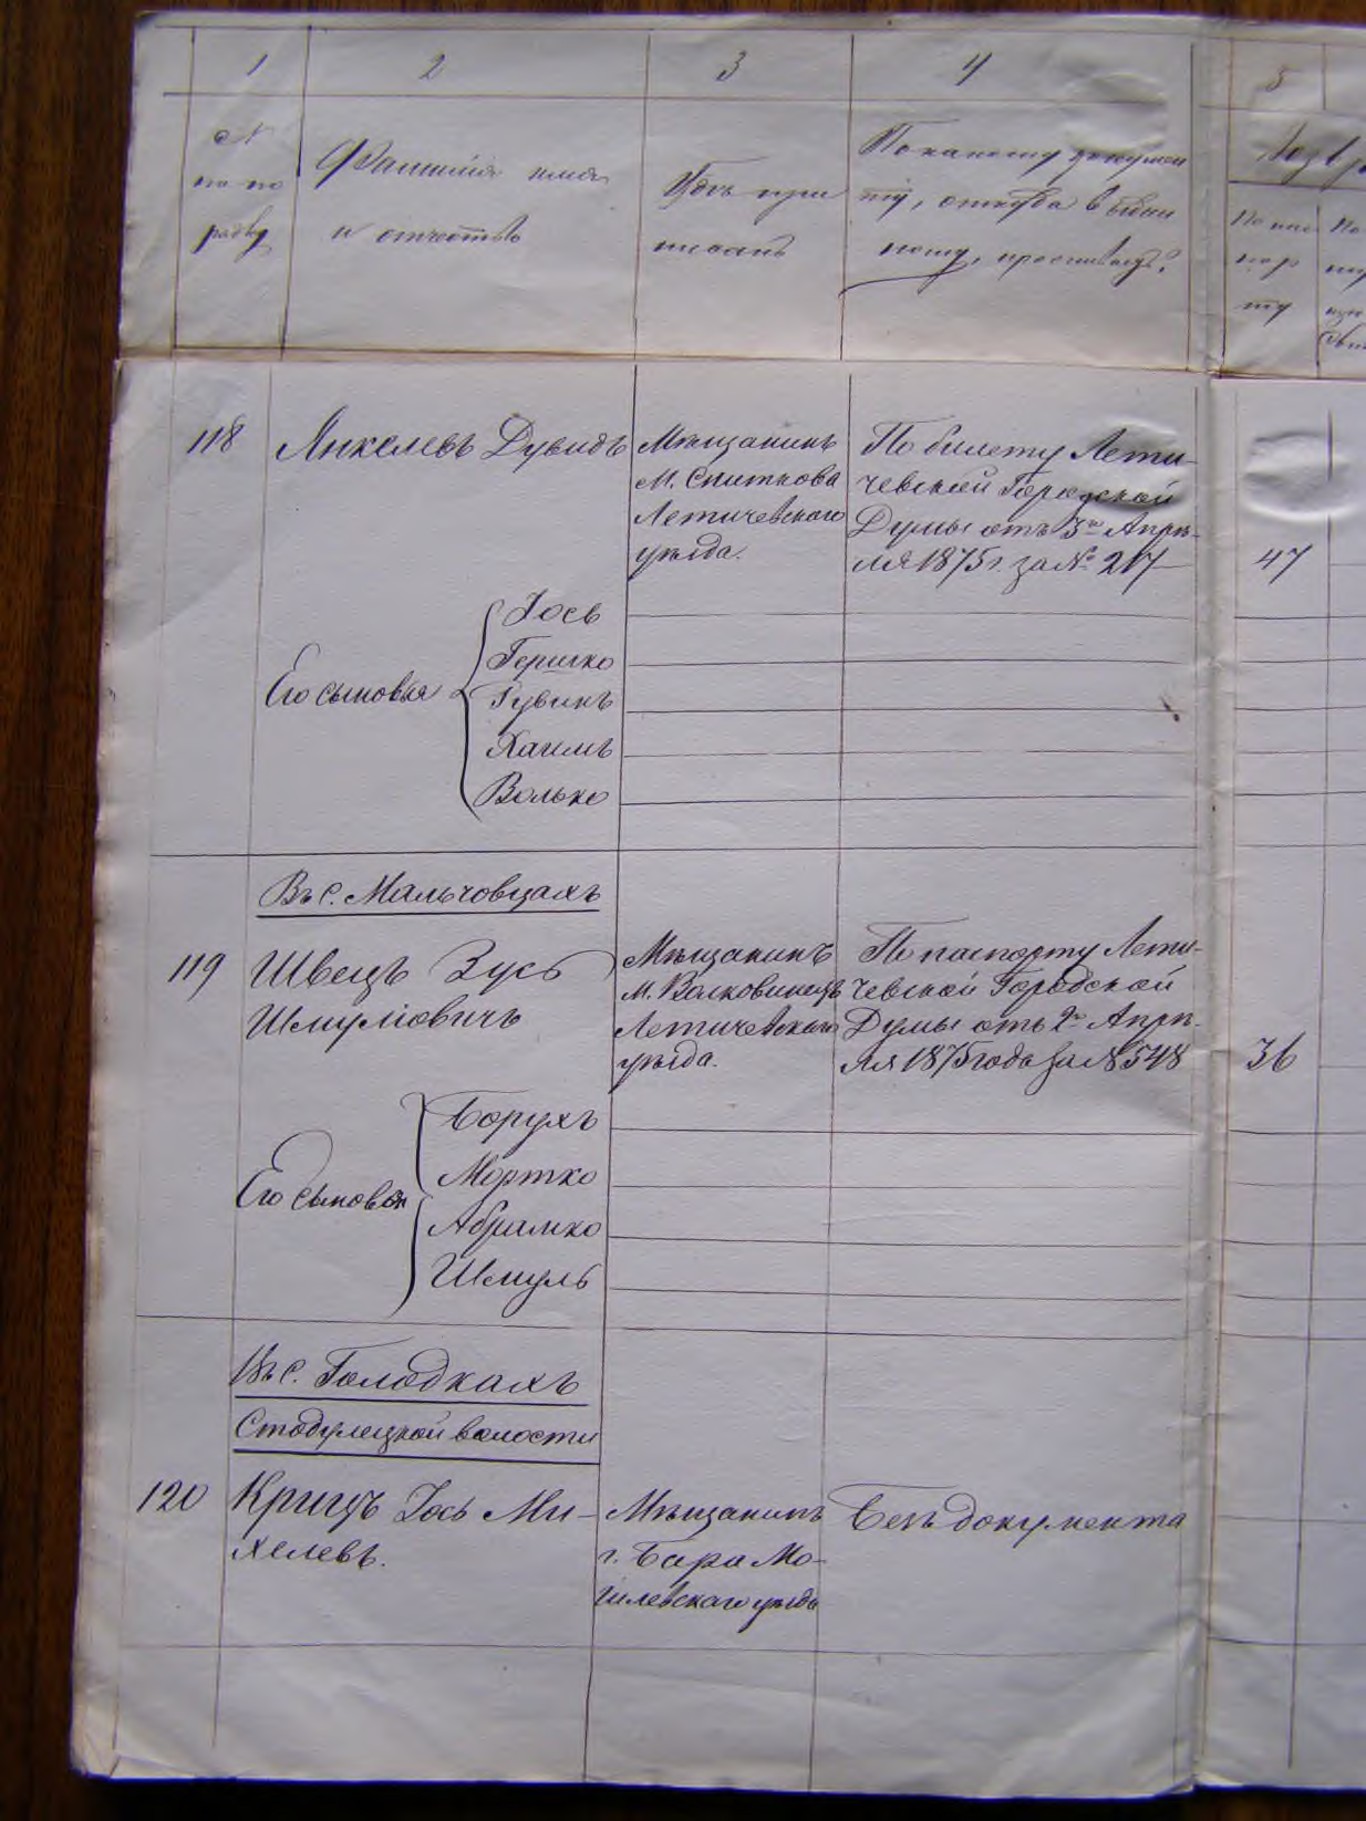 1 2 3 4 5
№
по по
рядку
Фамилия имя
и отчество
Гдѣ при
писанъ
По какому докумен
ту, откуда выдан
ному, проживаетъ?
Возра
По пас
пор
ту
По
118 Янкелевъ Дувидъ
Мѣщанинъ
м. Сниткова
Летичевскаго
уѣзда.
По билету Лети-
чевской Городской
Думы отъ 3го Апрѣ-
ля 1875 г. за № 217
47
Его сыновья
Іось
Гершко
Рувинъ
Хаимъ
Волько
Въ С. Мальчовцахъ
119 Швецъ Зусь
Шмуліовичъ
Мѣщанинъ
м. Волковинецъ
Летичевскаго
уѣзда.
По паспорту Лети-
чевской Городской
Думы отъ 2го Апрѣ-
ля 1875 года за № 548
36
Его сыновья
Борухъ
Мортко
Абрамко
Шмуль
Въ С. Голодкахъ
Стодулецкой волости
120 Крицъ Іось Ми-
хелевъ.
Мѣщанинъ
г. Бара Мо-
гилевскаго уѣзда
Безъ документа